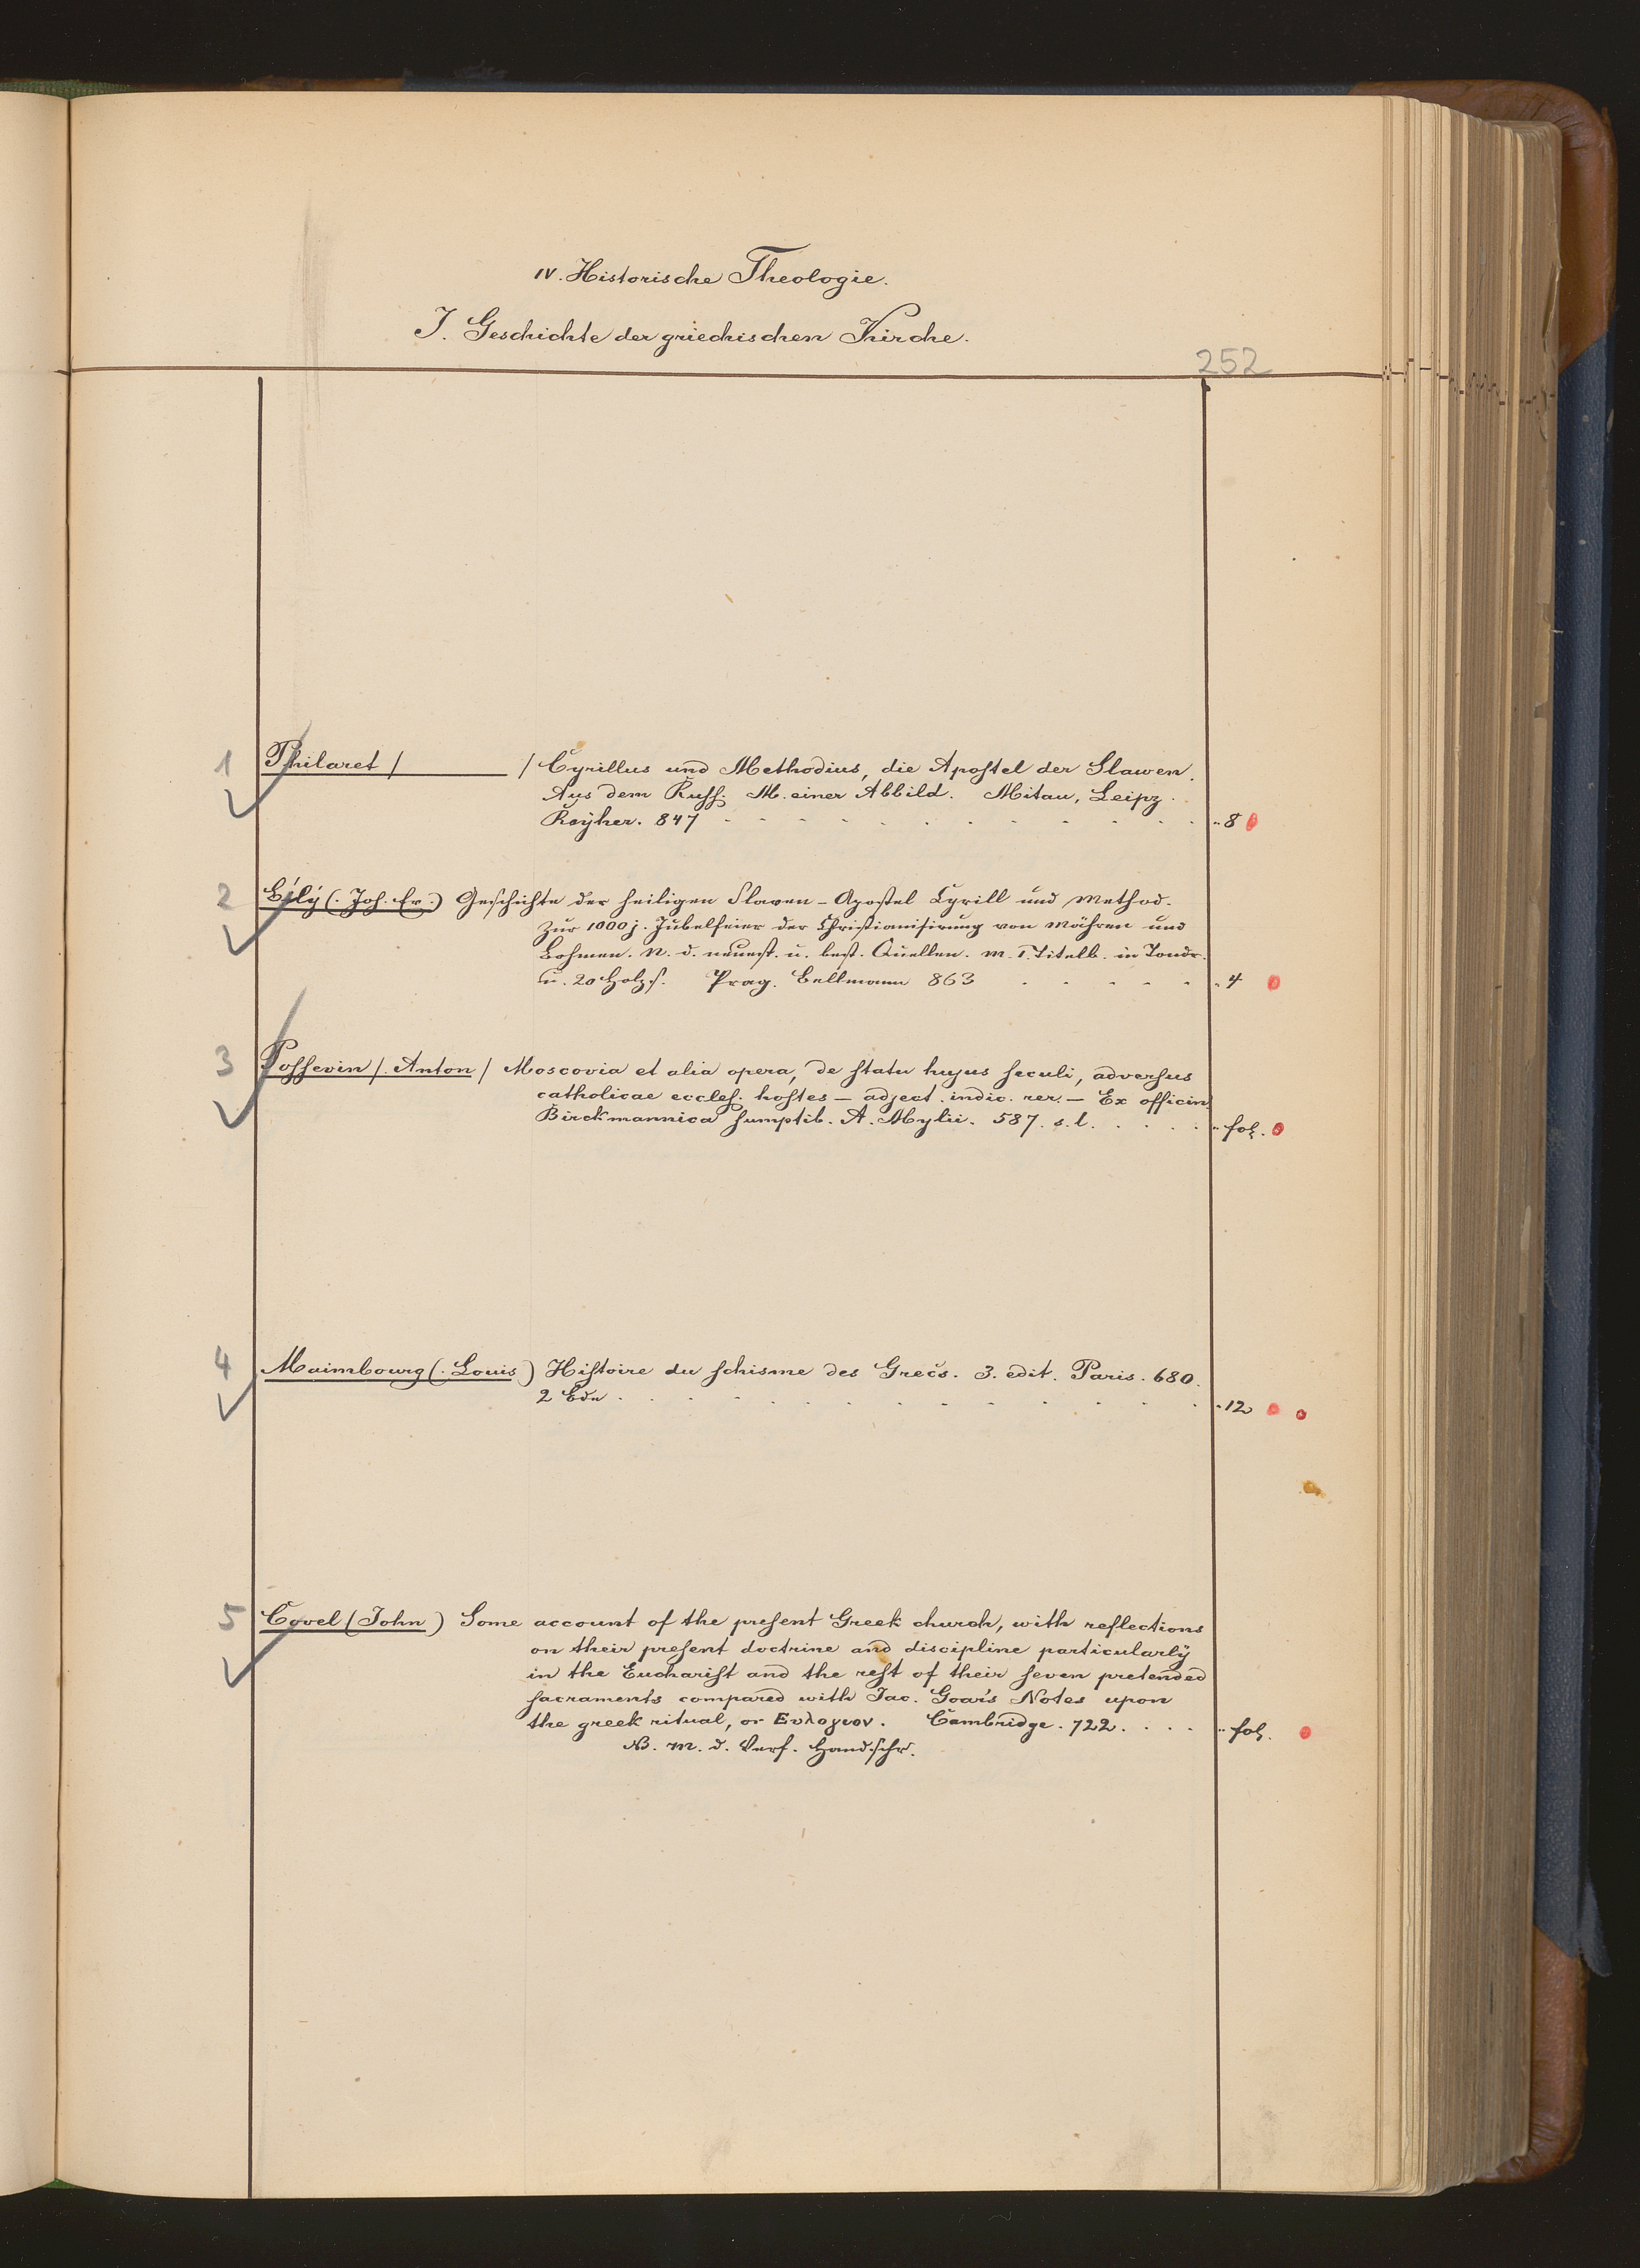 IV. Historische Theologie.
J. Geschichte der griechischen Kirche.
252
1 Philaret / / Cyrillus und Methodius, die Apostel der Slawen.
Aus dem Russ. M. einer Abbild. Mitau, Leipz.
Reyher. 847 8
2 Bílý (. Joh. Ev.) Geschichte der heiligen Slaven-Apostel Cyrill und Method.
Zur 1000j. Jubelfeier der Christianisirung von Mähren und
Bohmen. N. d. neuest. u. best. Quellen. M. 1. Titelb. in Tondr.
u. 20 Holzs. Prag. Bellmann 863 4
3 Possevin /. Anton / Moscovia et alia opera, de statu hujus seculi, adversus
catholicae eccles. hostes – adject. indic. rer. – Ex officin.
Birckmannica sumptib. A. Mylii. 587. s. l. fol.
4 Maimbourg (. Louis) Histoire du schisme des Grecs. 3. edit. Paris. 680.
2 Bde 12
5 Covel (John) Some account of the present Greek church, with reflections
on their present doctrine and discipline particularly
in the Eucharist and the rest of their seven pretended
sacraments compared with Jac. Goar's Notes upon
the greek ritual, or Ευλογιον. Cambridge. 722. fol.
NB. m. d. Verf. Handschr.